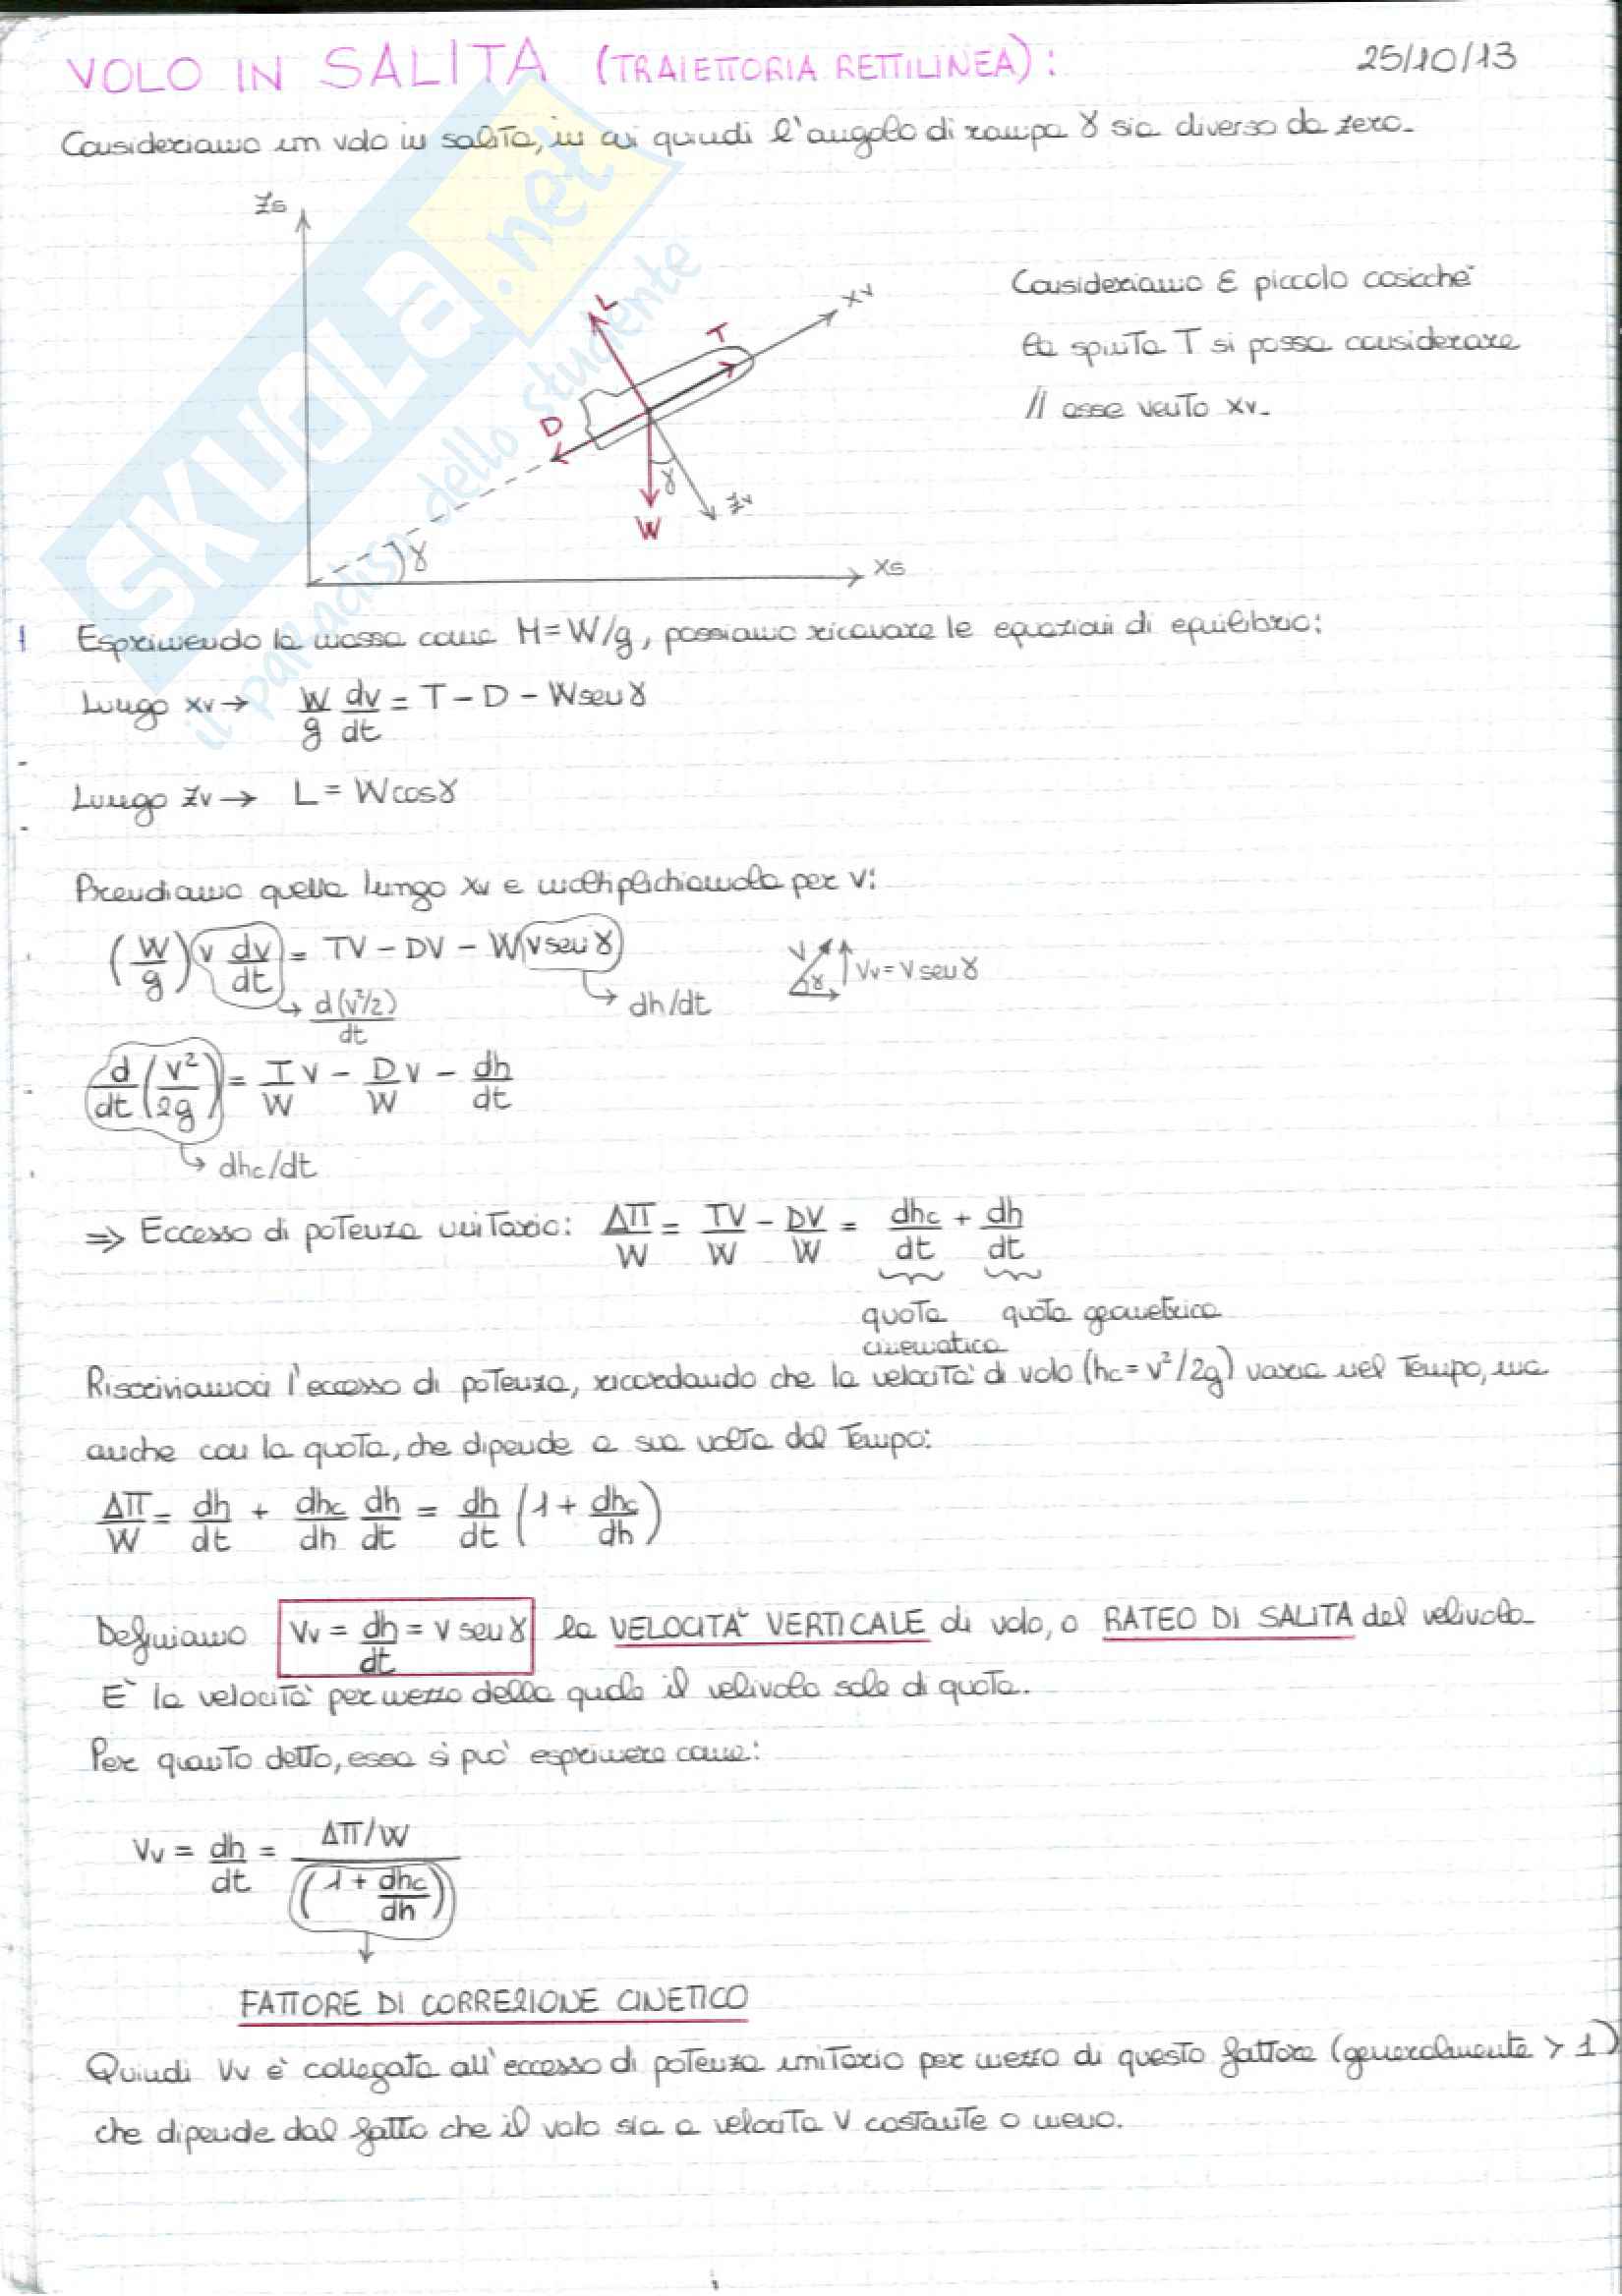 VOLO IN SALITA (TRAIETTORIA RETTILINEA): 25/10/13
Consideriamo un volo in salita, in cui quindi l'angolo di rampa γ sia diverso da zero.
Zs
L
T
xv
D
γ
W
Zv
γ
xs
Consideriamo ε piccolo cosicchè
la spinta T si possa considerare
// asse vento xv.
Esprimendo la massa come M=W/g, possiamo ricavare le equazioni di equilibrio:
Lungo xv → W/g dv/dt = T - D - W sen γ
Lungo Zv → L = W cos γ
Prendiamo quella lungo xv e moltiplichiamola per V:
(W/g) (v dv/dt) = TV - DV - W (v sen γ)
→ d(v²/2)/dt
→ dh/dt
V γ Vv = V sen γ
d/dt (v²/2g) = T/W v - D/W v - dh/dt
→ dhc/dt
⇒ Eccesso di potenza unitario: ΔΠ/W = TV/W - DV/W = dhc/dt + dh/dt
quota quota geometrica
cinematica
Riscriviamoci l'eccesso di potenza, ricordando che la velocità di volo (hc = v²/2g) varia nel tempo, ma
anche con la quota, che dipende a sua volta dal tempo:
ΔΠ/W = dh/dt + dhc/dh dh/dt = dh/dt (1 + dhc/dh)
Definiamo Vv = dh/dt = v sen γ la VELOCITA' VERTICALE di volo, o RATEO DI SALITA del velivolo.
E' la velocità per mezzo della quale il velivolo sale di quota.
Per quanto detto, essa si può esprimere come:
Vv = dh/dt = ΔΠ/W / (1 + dhc/dh)
↓
FATTORE DI CORREZIONE CINETICO
Quindi Vv è collegata all'eccesso di potenza unitario per mezzo di questo fattore (generalmente > 1)
che dipende dal fatto che il volo sia a velocità V costante o meno.
SKUOLA.net
il paradiso dello studente